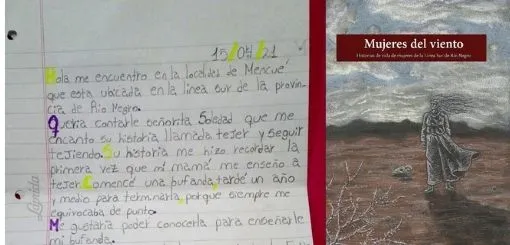 15/04/21
Hola me encuentro en la localidad de Mencué
que esta ubicada en la linea sur de la provin-
cia de Río Negro.
Quería contarle señorita Soledad que me
encanto su historia llamada tejer y seguir
tejiendo. Su historia me hizo recordar la
primera vez que mi mamá me enseño a
tejer. Comencé una bufanda, tardé un año
y medio para terminarla, porque siempre me
equivocaba de punto.
Me gustaría poder conocerla para enseñarle
mi bufanda.
Mujeres del viento
Historias de vida de mujeres de la Línea Sur de Río Negro